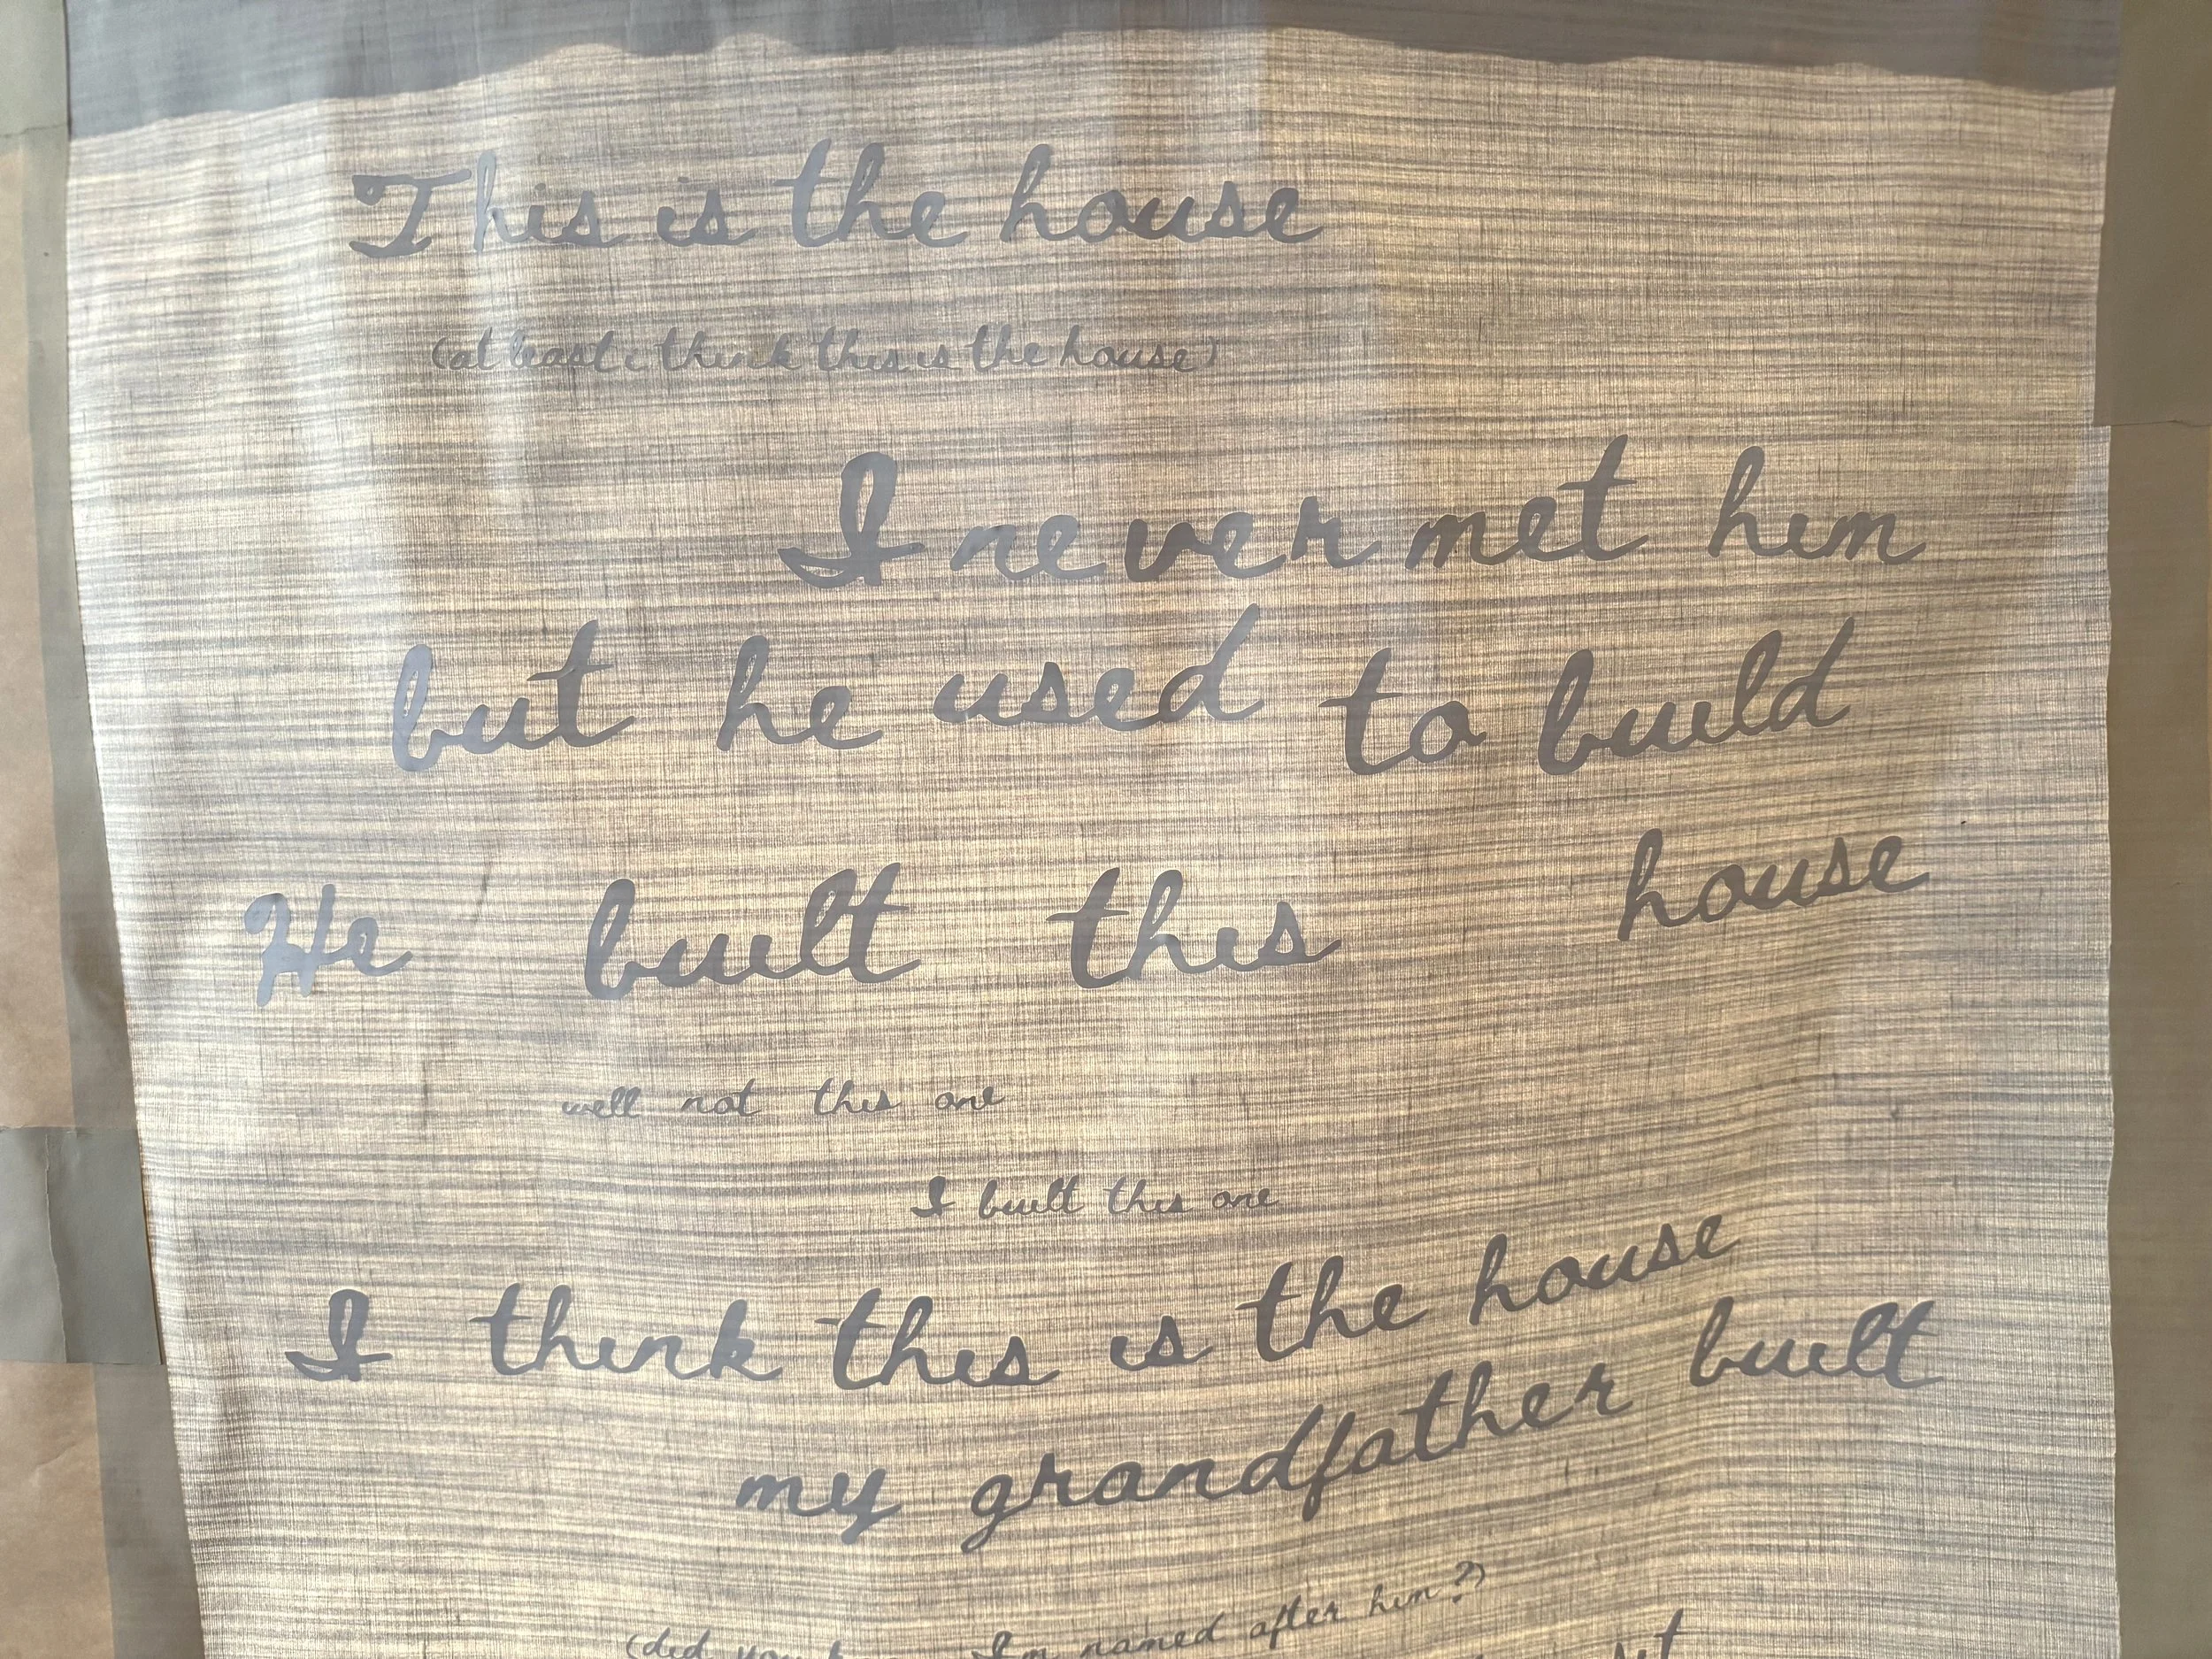 This is the house
(at least i think this is the house)
I never met him
but he used to build
He built this house
well not this one
I built this one
I think this is the house
my grandfather built
(did you I'm named after him?)